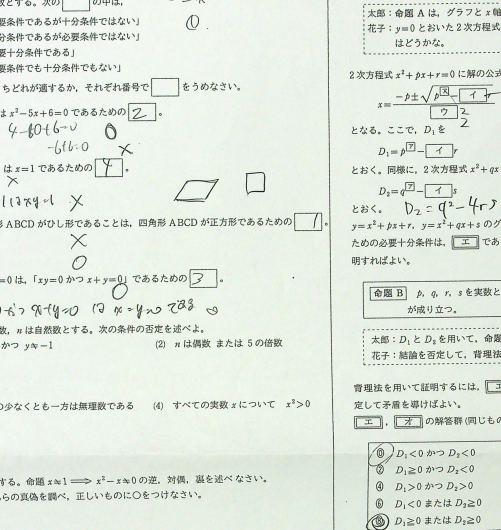 数とする。次の□の中は,
要条件であるが十分条件ではない」
①
分条件であるが必要条件ではない」
要十分条件である」
要条件でも十分条件でもない」
ちどれが適するか, それぞれ番号で□をうめなさい。
は x²−5x+6=0 であるための 2 。
4−10+6=0 ○
−6+6=0 ×
は x=1 であるための 4 。
×
×
形 ABCD がひし形であることは, 四角形 ABCD が正方形であるための 1 。
×
○
=0 は,「xy=0 かつ x+y=0」であるための 3 。
○
かつ x+y=0 は x=y=0 である
数, n は自然数とする。次の条件の否定を述べよ。
かつ y≒−1 (2) n は偶数 または 5 の倍数
の少なくとも一方は無理数である (4) すべての実数 x について x²>0
する。命題 x≒1 ⟹ x²−x≒0 の逆, 対偶, 裏を述べなさい。
らの真偽を調べ, 正しいものに○をつけなさい。
太郎:命題 A は, グラフと x 軸
花子:y=0 とおいた 2 次方程式
はどうかな。
2 次方程式 x²+px+r=0 に解の公式
x= −p±√p ア − イ
ウ 2
2
となる。ここで, D₁ を
D₁=p ア − イ r
とおく。同様に, 2 次方程式 x²+qx
D₂=q ア − イ s
とおく。 D₂=q²−4rs
y=x²+px+r, y=x²+qx+s のグ
ための必要十分条件は, エ であ
明すればよい。
命題 B p, q, r, s を実数と
が成り立つ。
太郎:D₁ と D₂ を用いて, 命題
花子:結論を否定して, 背理法
背理法を用いて証明するには, エ
定して矛盾を導けばよい。
エ , オ の解答群 (同じもの
⓪ D₁<0 かつ D₂<0
② D₁≧0 かつ D₂<0
④ D₁>0 かつ D₂>0
⑥ D₁<0 または D₂≧0
⑧ D₁≧0 または D₂≧0